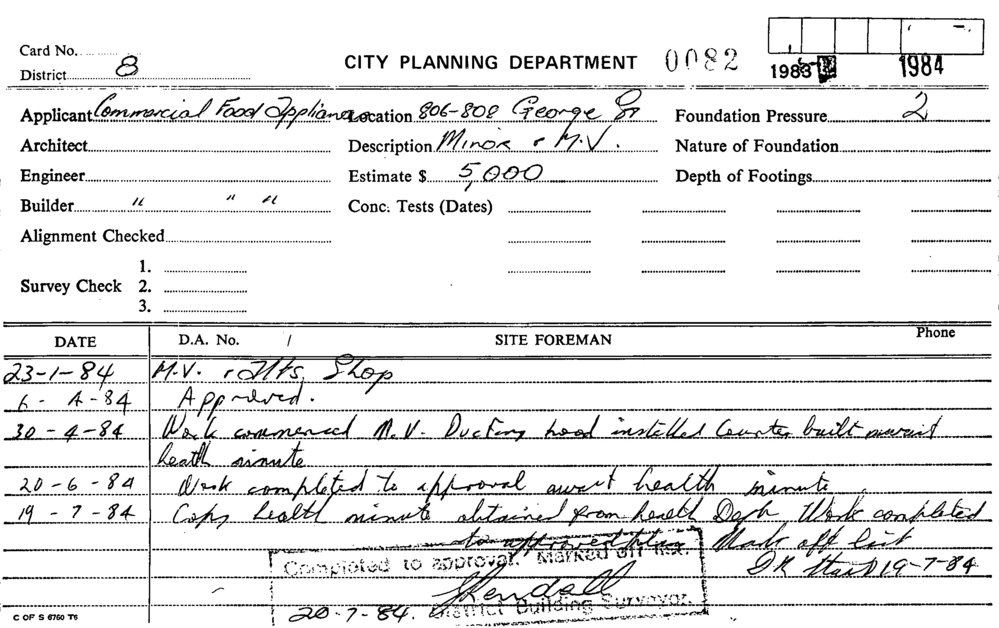 Card No.
District 8
CITY PLANNING DEPARTMENT 0082
1983 1984
Applicant Commercial Food Appliances Location 806-808 George St Foundation Pressure 2
Architect Description Minor & M.V. Nature of Foundation
Engineer Estimate $ 5,000 Depth of Footings
Builder " " " Conc. Tests (Dates)
Alignment Checked
1.
Survey Check 2.
3.
DATE D.A. No. / SITE FOREMAN Phone
23-1-84 M.V. & Alts. Shop
6-4-84 Approved.
30-4-84 Work commenced M.V. Ducting hood installed Counter built await
heath minute
20-6-84 Work completed to approval await health minute
19-7-84 Copy health minute obtained from health Dept Work completed
to approved plan Mark off list
Completed to approval. Marked off list.
19-7-84
20-7-84. District Building Surveyor.
C OF S 6760 T6